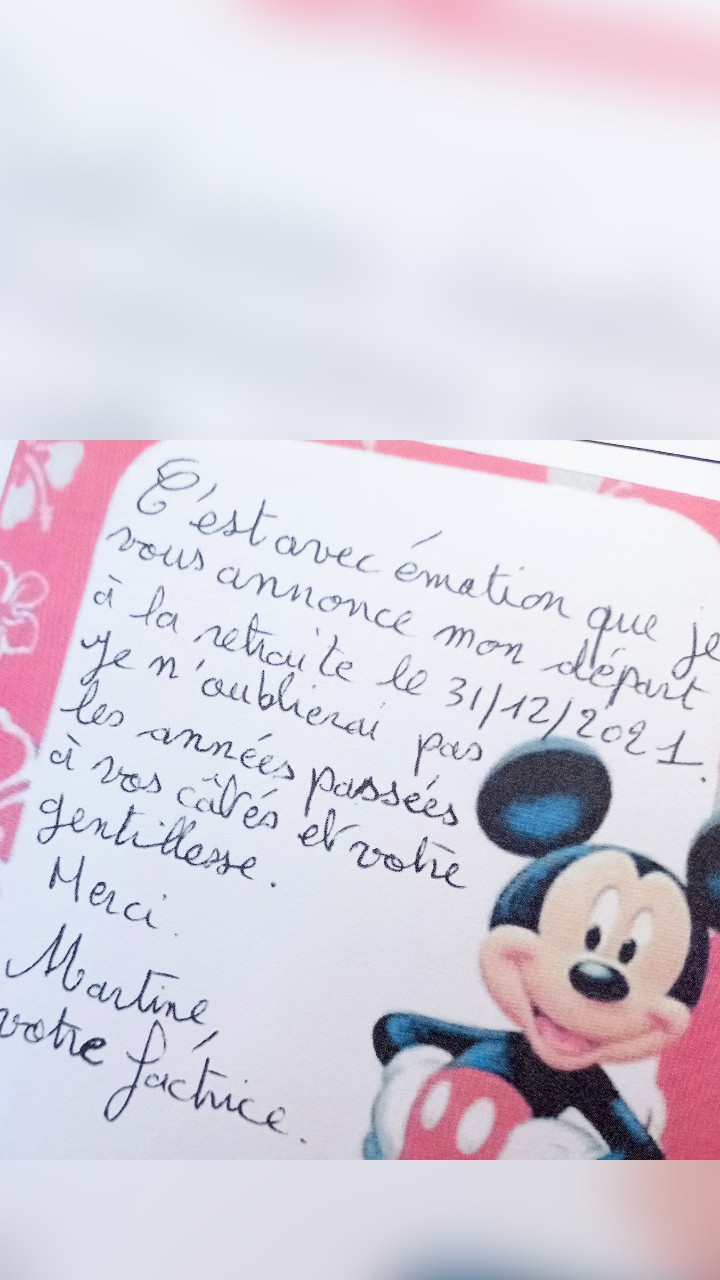 C'est avec émotion que je
vous annonce mon départ
à la retraite le 31/12/2021.
Je n'oublierai pas
les années passées
à vos côtés et votre
gentillesse.
Merci.
Martine,
votre factrice.